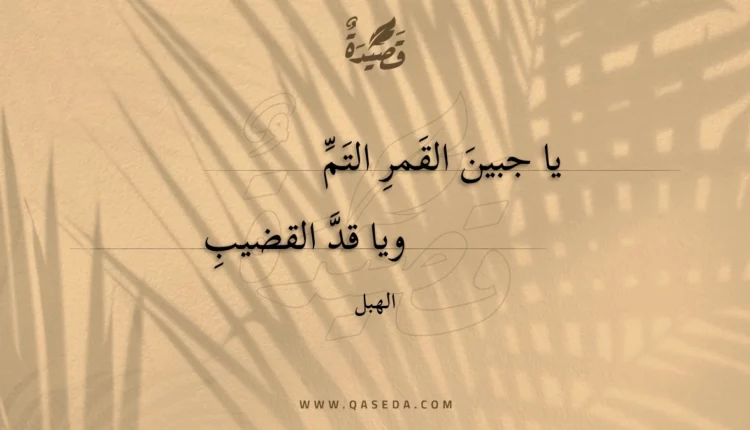 قَصِيْدَةٌ
يا جبينَ القَمرِ التَمِّ
ويا قدَّ القضيبِ
الهبل
WWW.QASEDA.COM